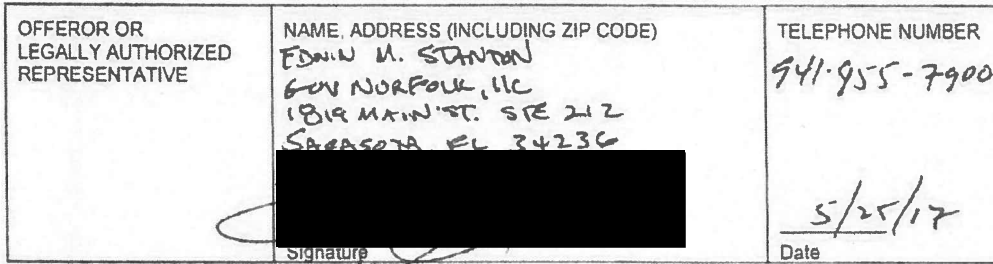 OFFEROR OR
LEGALLY AUTHORIZED
REPRESENTATIVE
NAME, ADDRESS (INCLUDING ZIP CODE)
EDWIN M. STANTON
GOV NORFOLK, LLC
1819 MAIN ST. STE 212
SARASOTA FL 34236
Signature
TELEPHONE NUMBER
941-955-7900
5/25/17
Date